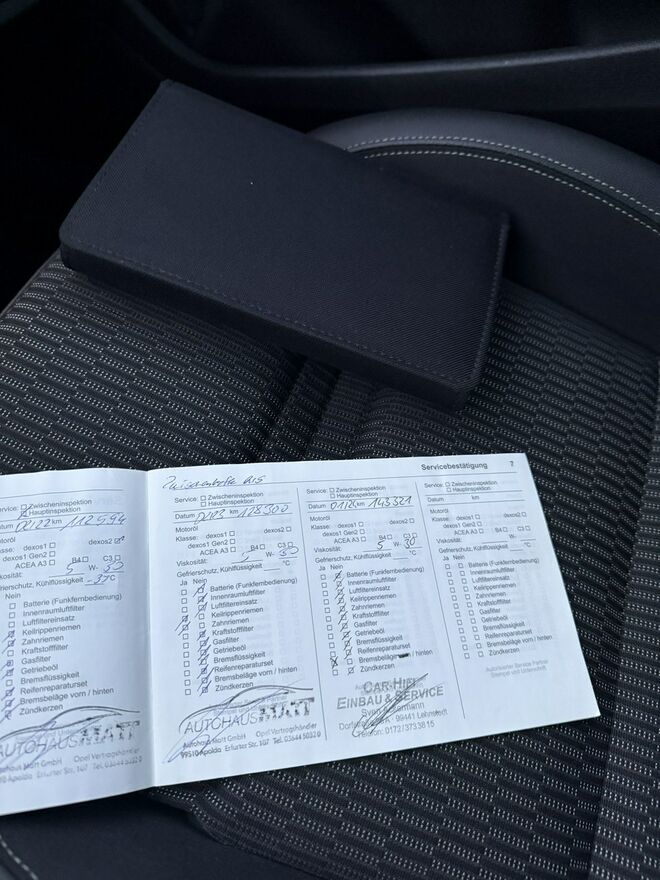 Servicebestätigung 7
Service: Zwischeninspektion
Hauptinspektion
Datum 02/22 km 112594
Motoröl
Klasse: dexos1 dexos2
dexos1 Gen2
ACEA A3 B4 C3
Viskosität: 5 W- 30
Gefrierschutz, Kühlflüssigkeit °C
Nein
Batterie (Funkfernbedienung)
Innenraumluftfilter
Luftfiltereinsatz
Keilrippenriemen
Zahnriemen
Kraftstofffilter
Gasfilter
Getriebeöl
Bremsflüssigkeit
Reifenreparaturset
Bremsbeläge vorn / hinten
Zündkerzen
AUTOHAUS MATT
Autohaus Matt GmbH Opel Vertragshändler
99510 Apolda Erfurter Str. 107 Tel. 03644 5032 0
Service: Zwischeninspektion
Hauptinspektion
Datum km 128500
Motoröl
Klasse: dexos1 dexos2
dexos1 Gen2
ACEA A3 B4 C3
Viskosität: 5 W- 30
Gefrierschutz, Kühlflüssigkeit °C
Ja Nein
Batterie (Funkfernbedienung)
Innenraumluftfilter
Luftfiltereinsatz
Keilrippenriemen
Zahnriemen
Kraftstofffilter
Gasfilter
Getriebeöl
Bremsflüssigkeit
Reifenreparaturset
Bremsbeläge vorn / hinten
Zündkerzen
AUTOHAUS MATT
Autohaus Matt GmbH Opel Vertragshändler
99510 Apolda Erfurter Str. 107 Tel. 03644 5032 0
Service: Zwischeninspektion
Hauptinspektion
Datum km 143321
Motoröl
Klasse: dexos1 dexos2
dexos1 Gen2
ACEA A3 B4 C3
Viskosität: 5 W- 30
Gefrierschutz, Kühlflüssigkeit °C
Ja Nein
Batterie (Funkfernbedienung)
Innenraumluftfilter
Luftfiltereinsatz
Keilrippenriemen
Zahnriemen
Kraftstofffilter
Gasfilter
Getriebeöl
Bremsflüssigkeit
Reifenreparaturset
Bremsbeläge vorn / hinten
Zündkerzen
CAR-HIFI
EINBAU & SERVICE
99441 Lehnstedt
Telefon: 0172/3733815
Service: Zwischeninspektion
Hauptinspektion
Datum km
Motoröl
Klasse: dexos1 dexos2
dexos1 Gen2
ACEA A3 B4 C3
Viskosität: W-
Gefrierschutz, Kühlflüssigkeit °C
Ja Nein
Batterie (Funkfernbedienung)
Innenraumluftfilter
Luftfiltereinsatz
Keilrippenriemen
Zahnriemen
Kraftstofffilter
Gasfilter
Getriebeöl
Bremsflüssigkeit
Reifenreparaturset
Bremsbeläge vorn / hinten
Zündkerzen
Autorisierter Service Partner
Stempel und Unterschrift